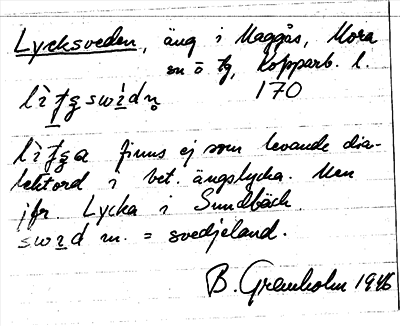 Lycksveden, äng i Maggås, Mora
sn o tg, Kopparb. l.
170
finns ej som levande dia-
lektord i bet. ängslycka. Men
jfr. Lycka i Sundbäck
m. = svedjeland.
B. Granholm 1946